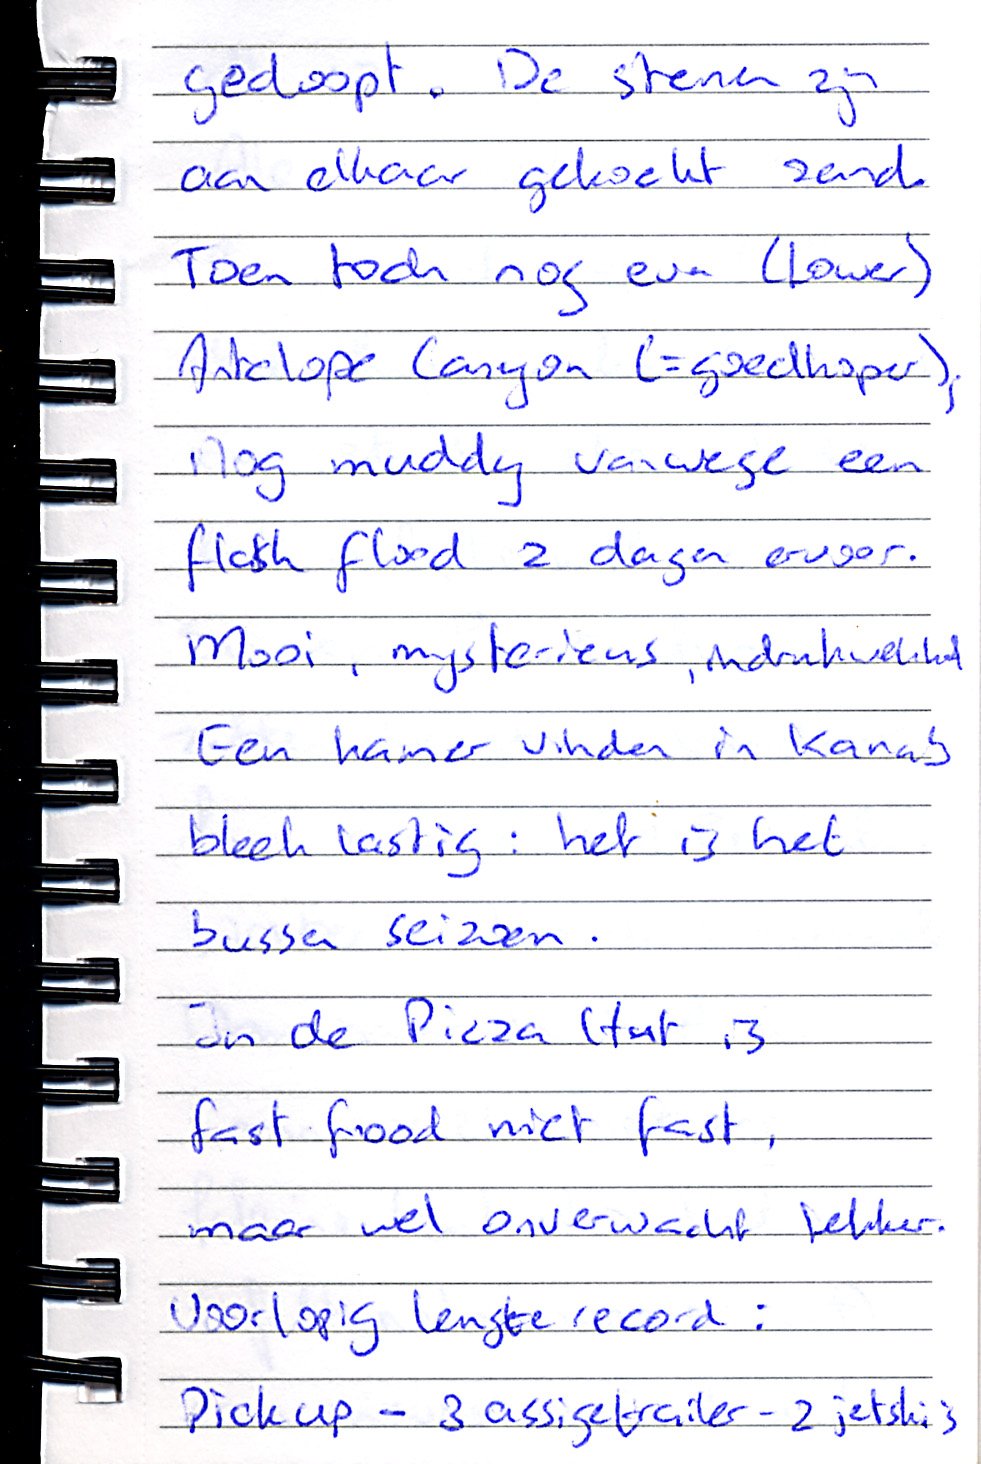 gedoopt. De stenen zijn
aan elkaar gekoekt zand.
Toen toch nog even (Lower)
Antelope Canyon (=goedkoper),
nog muddy vanwege een
flash flood 2 dagen ervoor.
Mooi, mysterieus, indrukwekkend
Een hamer vinden in Kanab
bleek lastig: het is het
bussen seizoen.
In de Pizza Hut is
fast food niet fast,
maar wel onverwacht lekker.
Voorlopig lengte record:
Pickup - 3 assige trailer - 2 jetski's